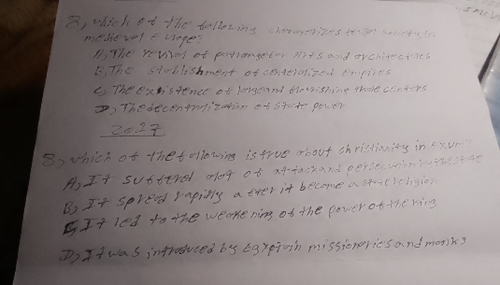 8, which of the following characterizes feudal society in
medieval Europe?
A, The revival of patronage for Arts and architectures
B, The stablishment of centeralized empires
C, The existence of large and flourishing trade centers
D, The decentralization of state power
2017
8, which of the following is true about christianity in Exum?
A, It suffered alot of attack and persecution with the state
B, It spread rapidly after it become a state religion
C, It led to the weakening of the power of the king
D, It was introduced by Egyptain missioneries and monks